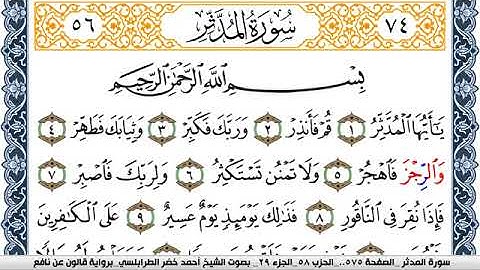 ٧٤ سُورَةُ الْمُدَّثِّرِ ٥٦
بِسْمِ اللَّهِ الرَّحْمَٰنِ الرَّحِيمِ
يَٰأَيُّهَا الْمُدَّثِّرُ ١ قُمْ فَأَنذِرْ ٢ وَرَبَّكَ فَكَبِّرْ ٣ وَثِيَابَكَ فَطَهِّرْ ٤
وَالرِّجْزَ فَاهْجُرْ ٥ وَلَا تَمْنُن تَسْتَكْثِرُ ٦ وَلِرَبِّكَ فَاصْبِرْ ٧
فَإِذَا نُقِرَ فِي النَّاقُورِ ٨ فَذَٰلِكَ يَوْمَئِذٍ يَوْمٌ عَسِيرٌ ٩ عَلَى الْكَٰفِرِينَ
سورة المدثر_ الصفحة ٥٧٥.. الحزب ٥٨_الجزء ٢٩_ بصوت الشيخ أحمد خضر الطرابلسي_برواية قالون عن نافع